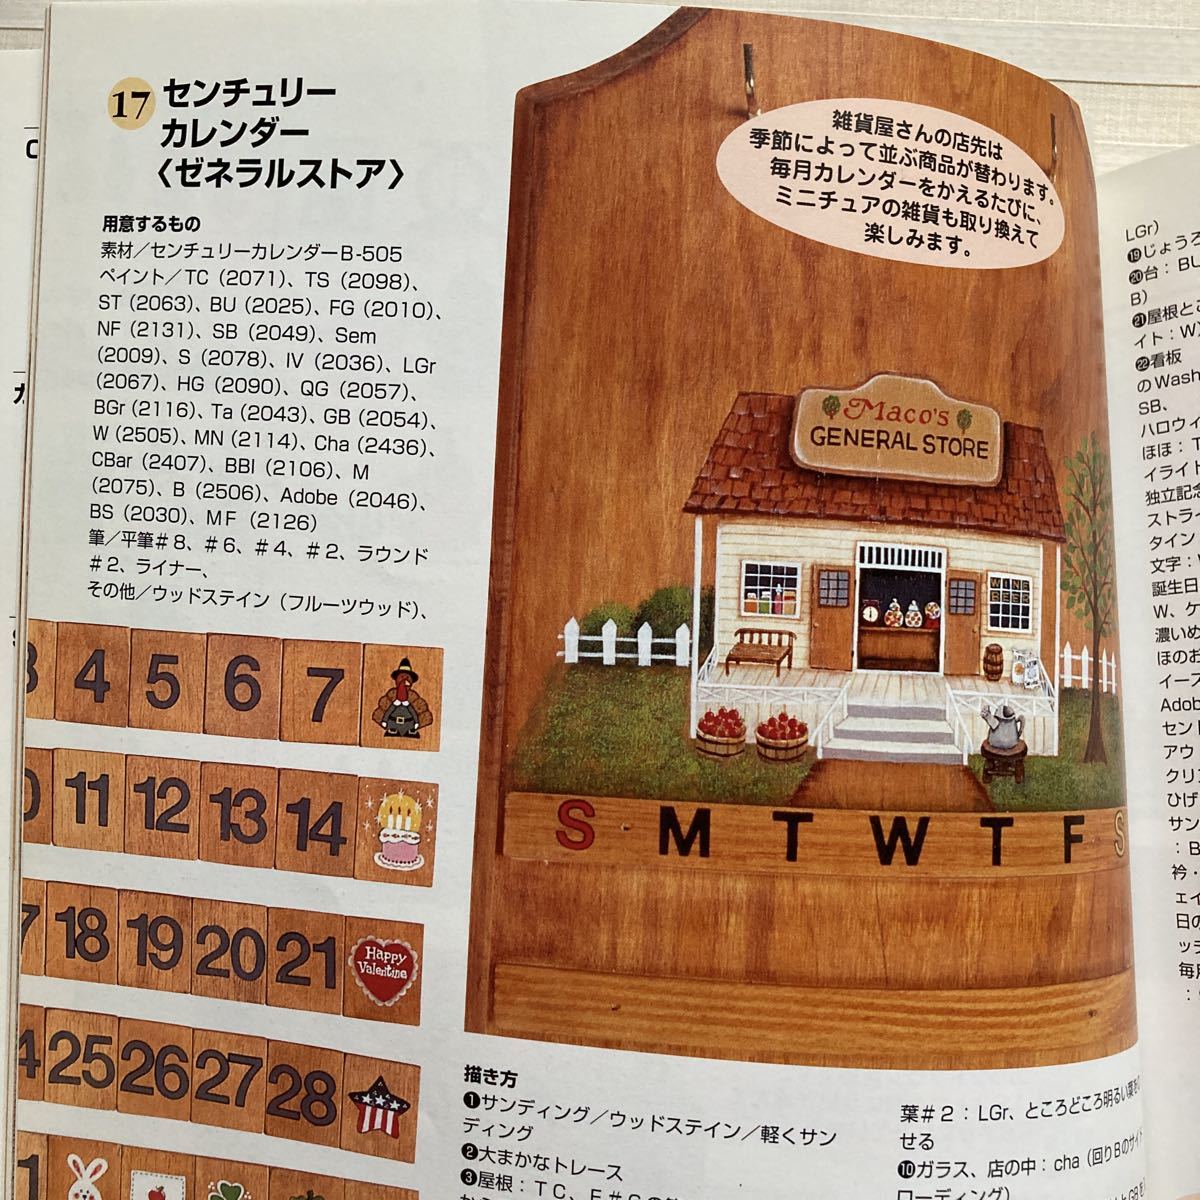 17 センチュリー
カレンダー
〈ゼネラルストア〉
用意するもの
素材／センチュリーカレンダーB-505
ペイント／TC（2071）、TS（2098）、
ST（2063）、BU（2025）、FG（2010）、
NF（2131）、SB（2049）、Sem
（2009）、S（2078）、IV（2036）、LGr
（2067）、HG（2090）、QG（2057）、
BGr（2116）、Ta（2043）、GB（2054）、
W（2505）、MN（2114）、Cha（2436）、
CBar（2407）、BBl（2106）、M
（2075）、B（2506）、Adobe（2046）、
BS（2030）、MF（2126）
筆／平筆＃8、＃6、＃4、＃2、ラウンド
＃2、ライナー、
その他／ウッドステイン（フルーツウッド）、
雑貨屋さんの店先は
季節によって並ぶ商品が替わります。
毎月カレンダーをかえるたびに、
ミニチュアの雑貨も取り換えて
楽しみます。
Maco's
GENERAL STORE
WINE
BEER
S M T W T F S
4 5 6 7
11 12 13 14
18 19 20 21
Happy
Valentine
25 26 27 28
描き方
❶サンディング／ウッドステイン／軽くサン
ディング
❷大まかなトレース
❸屋根：TC、F
葉＃2：LGr、ところどころ明るい葉を
せる
❿ガラス、店の中：cha（回りBのサイド
ローディング）
LGr）
⓳じょうろ
⓴台：BU
B）
㉑屋根と
イト：W
㉒看板
のWash
SB、
ハロウィ
ほほ：T
イライト
独立記念
ストライ
タイン
文字：W
誕生日
W、ケ
濃いめ
ほのお
イース
Adob
セント
アウ
クリ
ひげ
サン
：B
衿・
ェイ
日の
ッチ
毎月